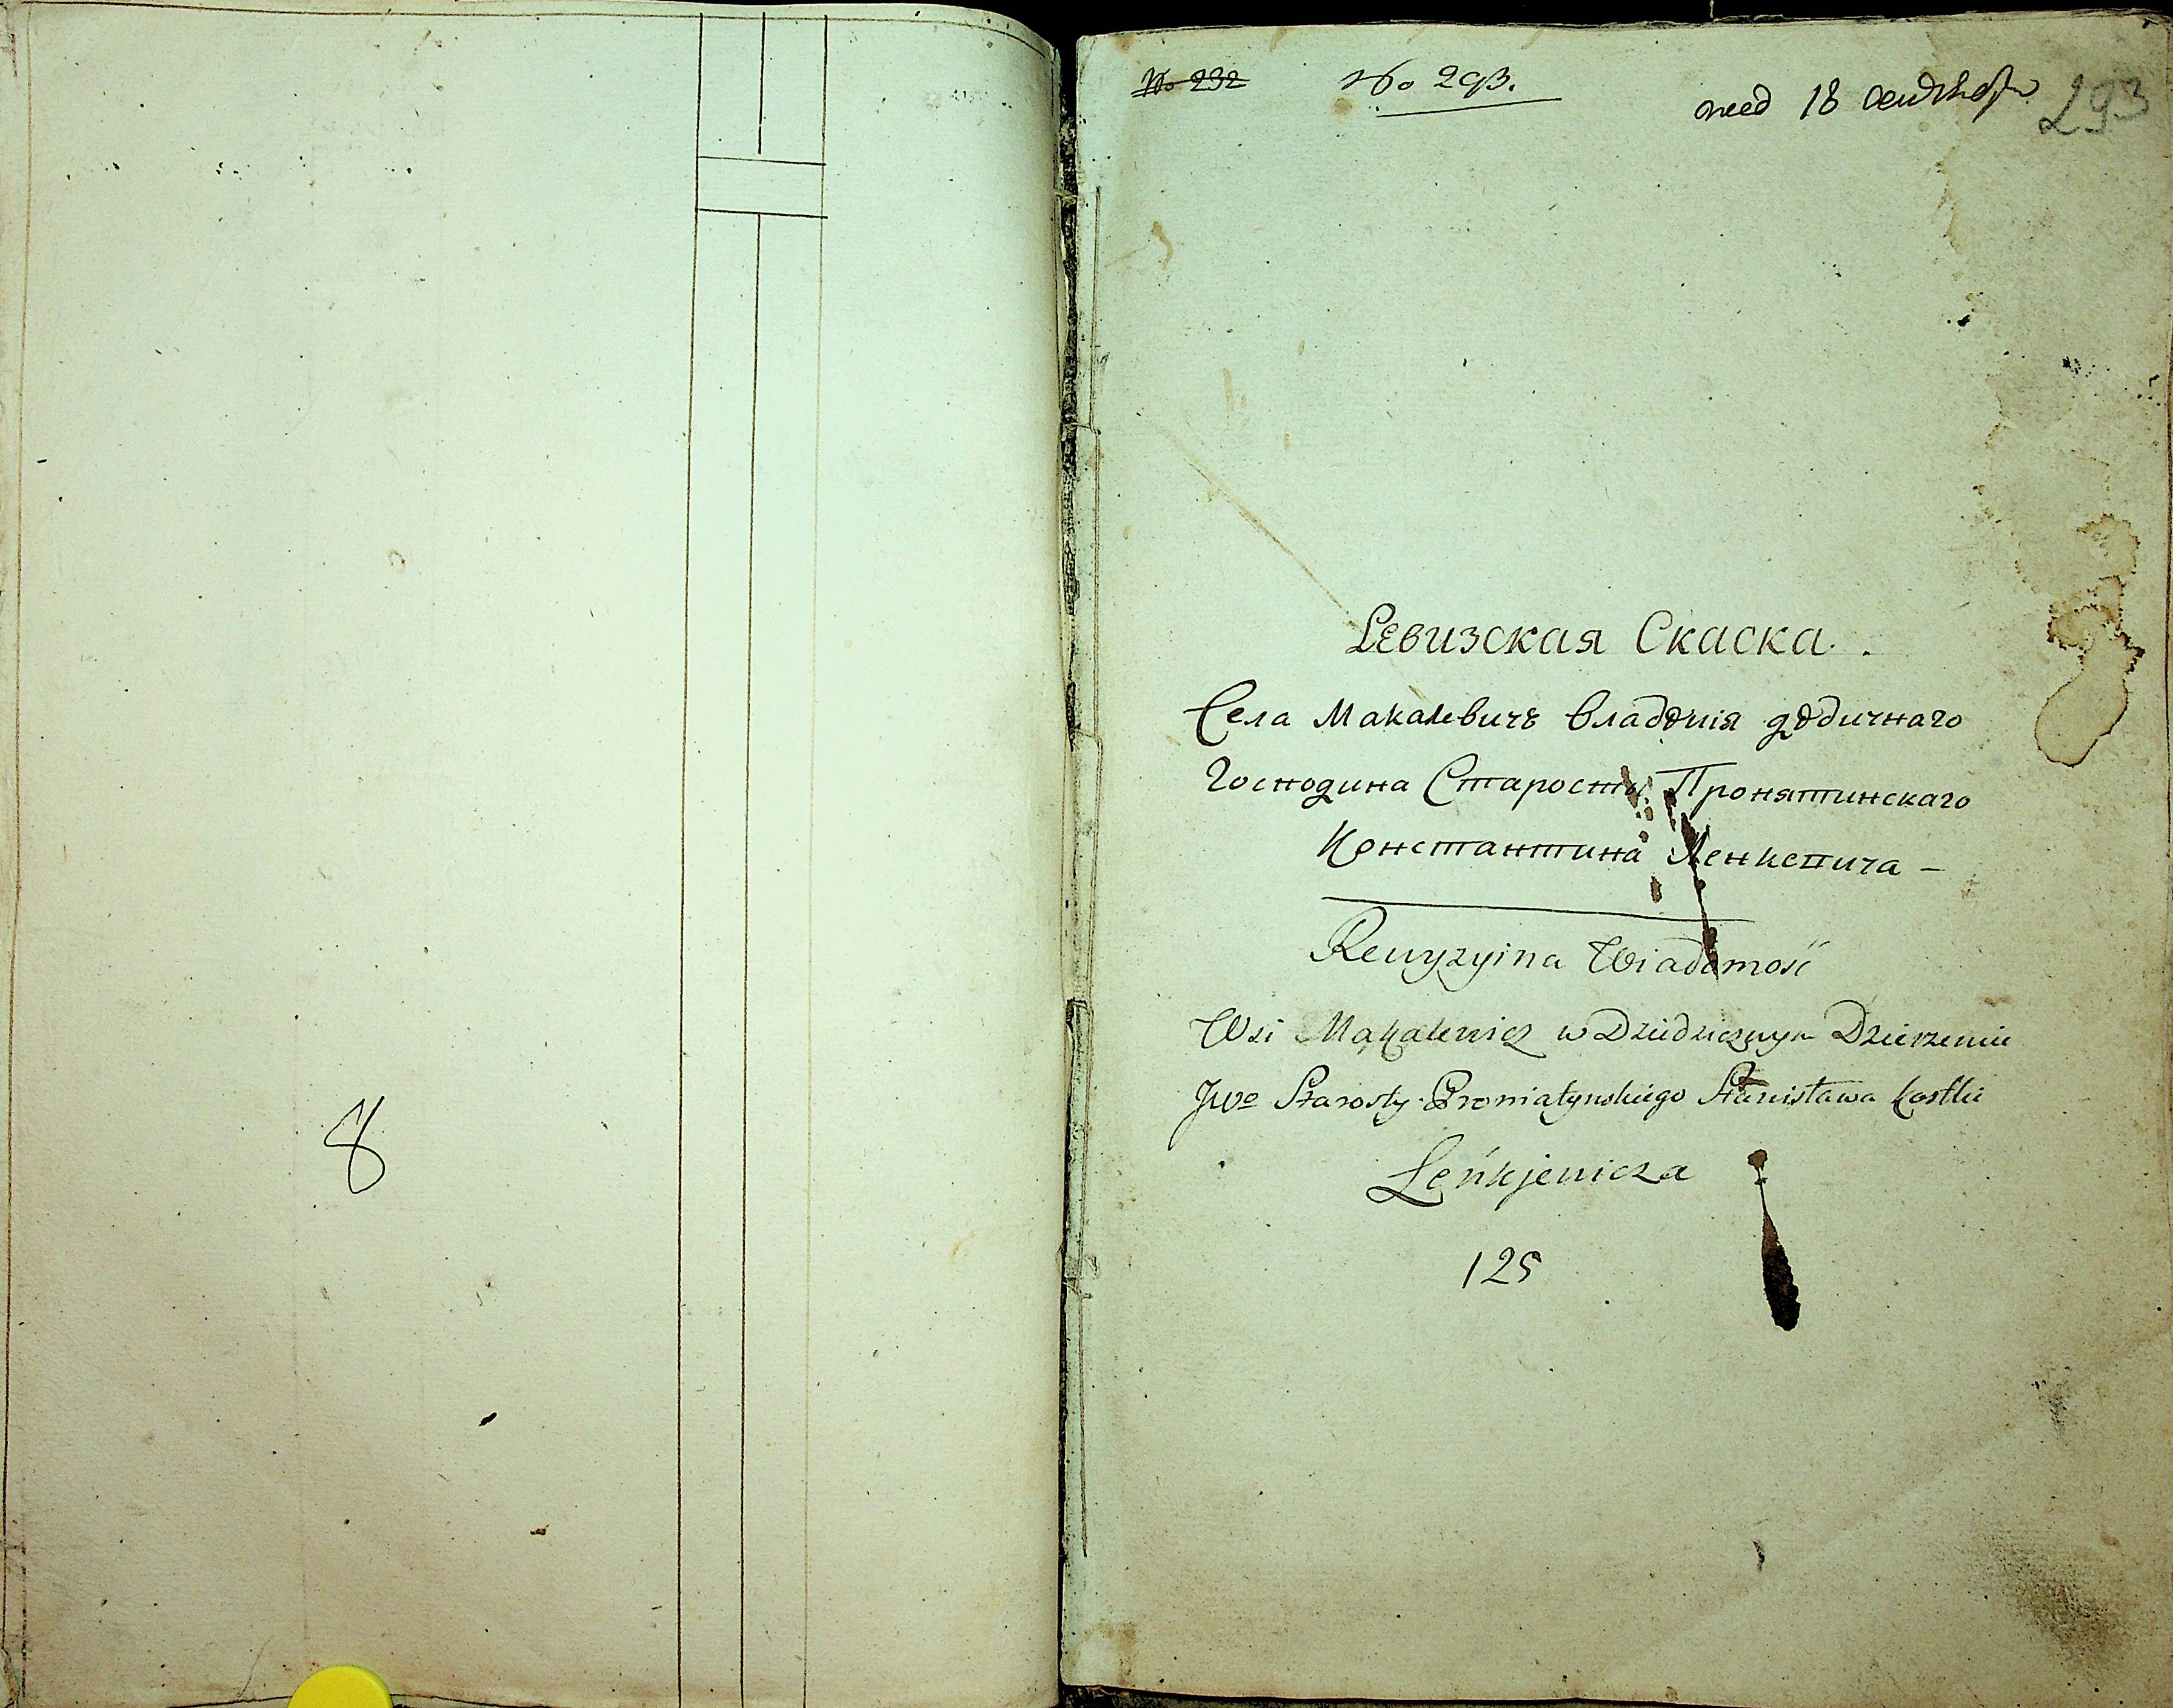 8
No 232
No 293.
18 сентября
293
Ревизская Скаска.
Села Макалевичъ владѣнія дѣдичнаго
Господина Старосты Пронятинскаго
Константина Ленкевича –
Rewyzyina Wiadomość
Wsi Makalewicz w Dziedzicznym Dzierzeniu
JWo Starosty Proniatynskiego Stanisława Kostki
Leńkjewicza
125